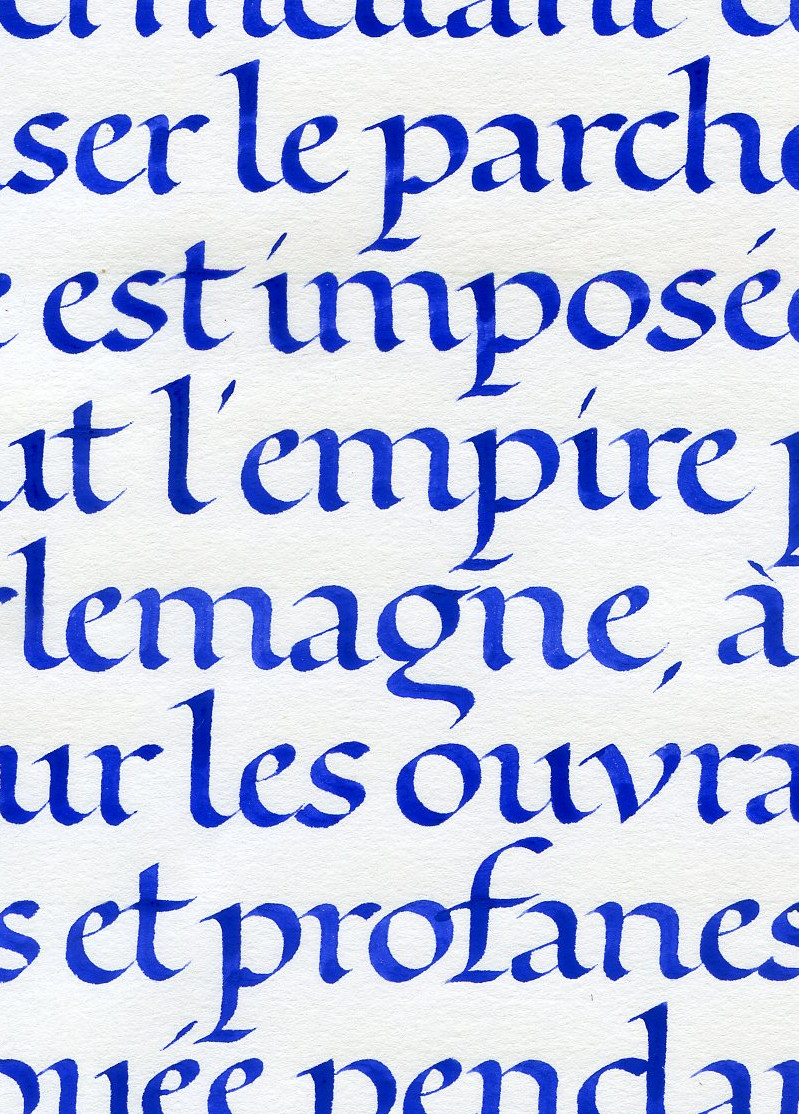 ermettant
ser le parche
e est imposée
ut l'empire p
rlemagne, à
ur les ouvra
s et profanes
uée pendan